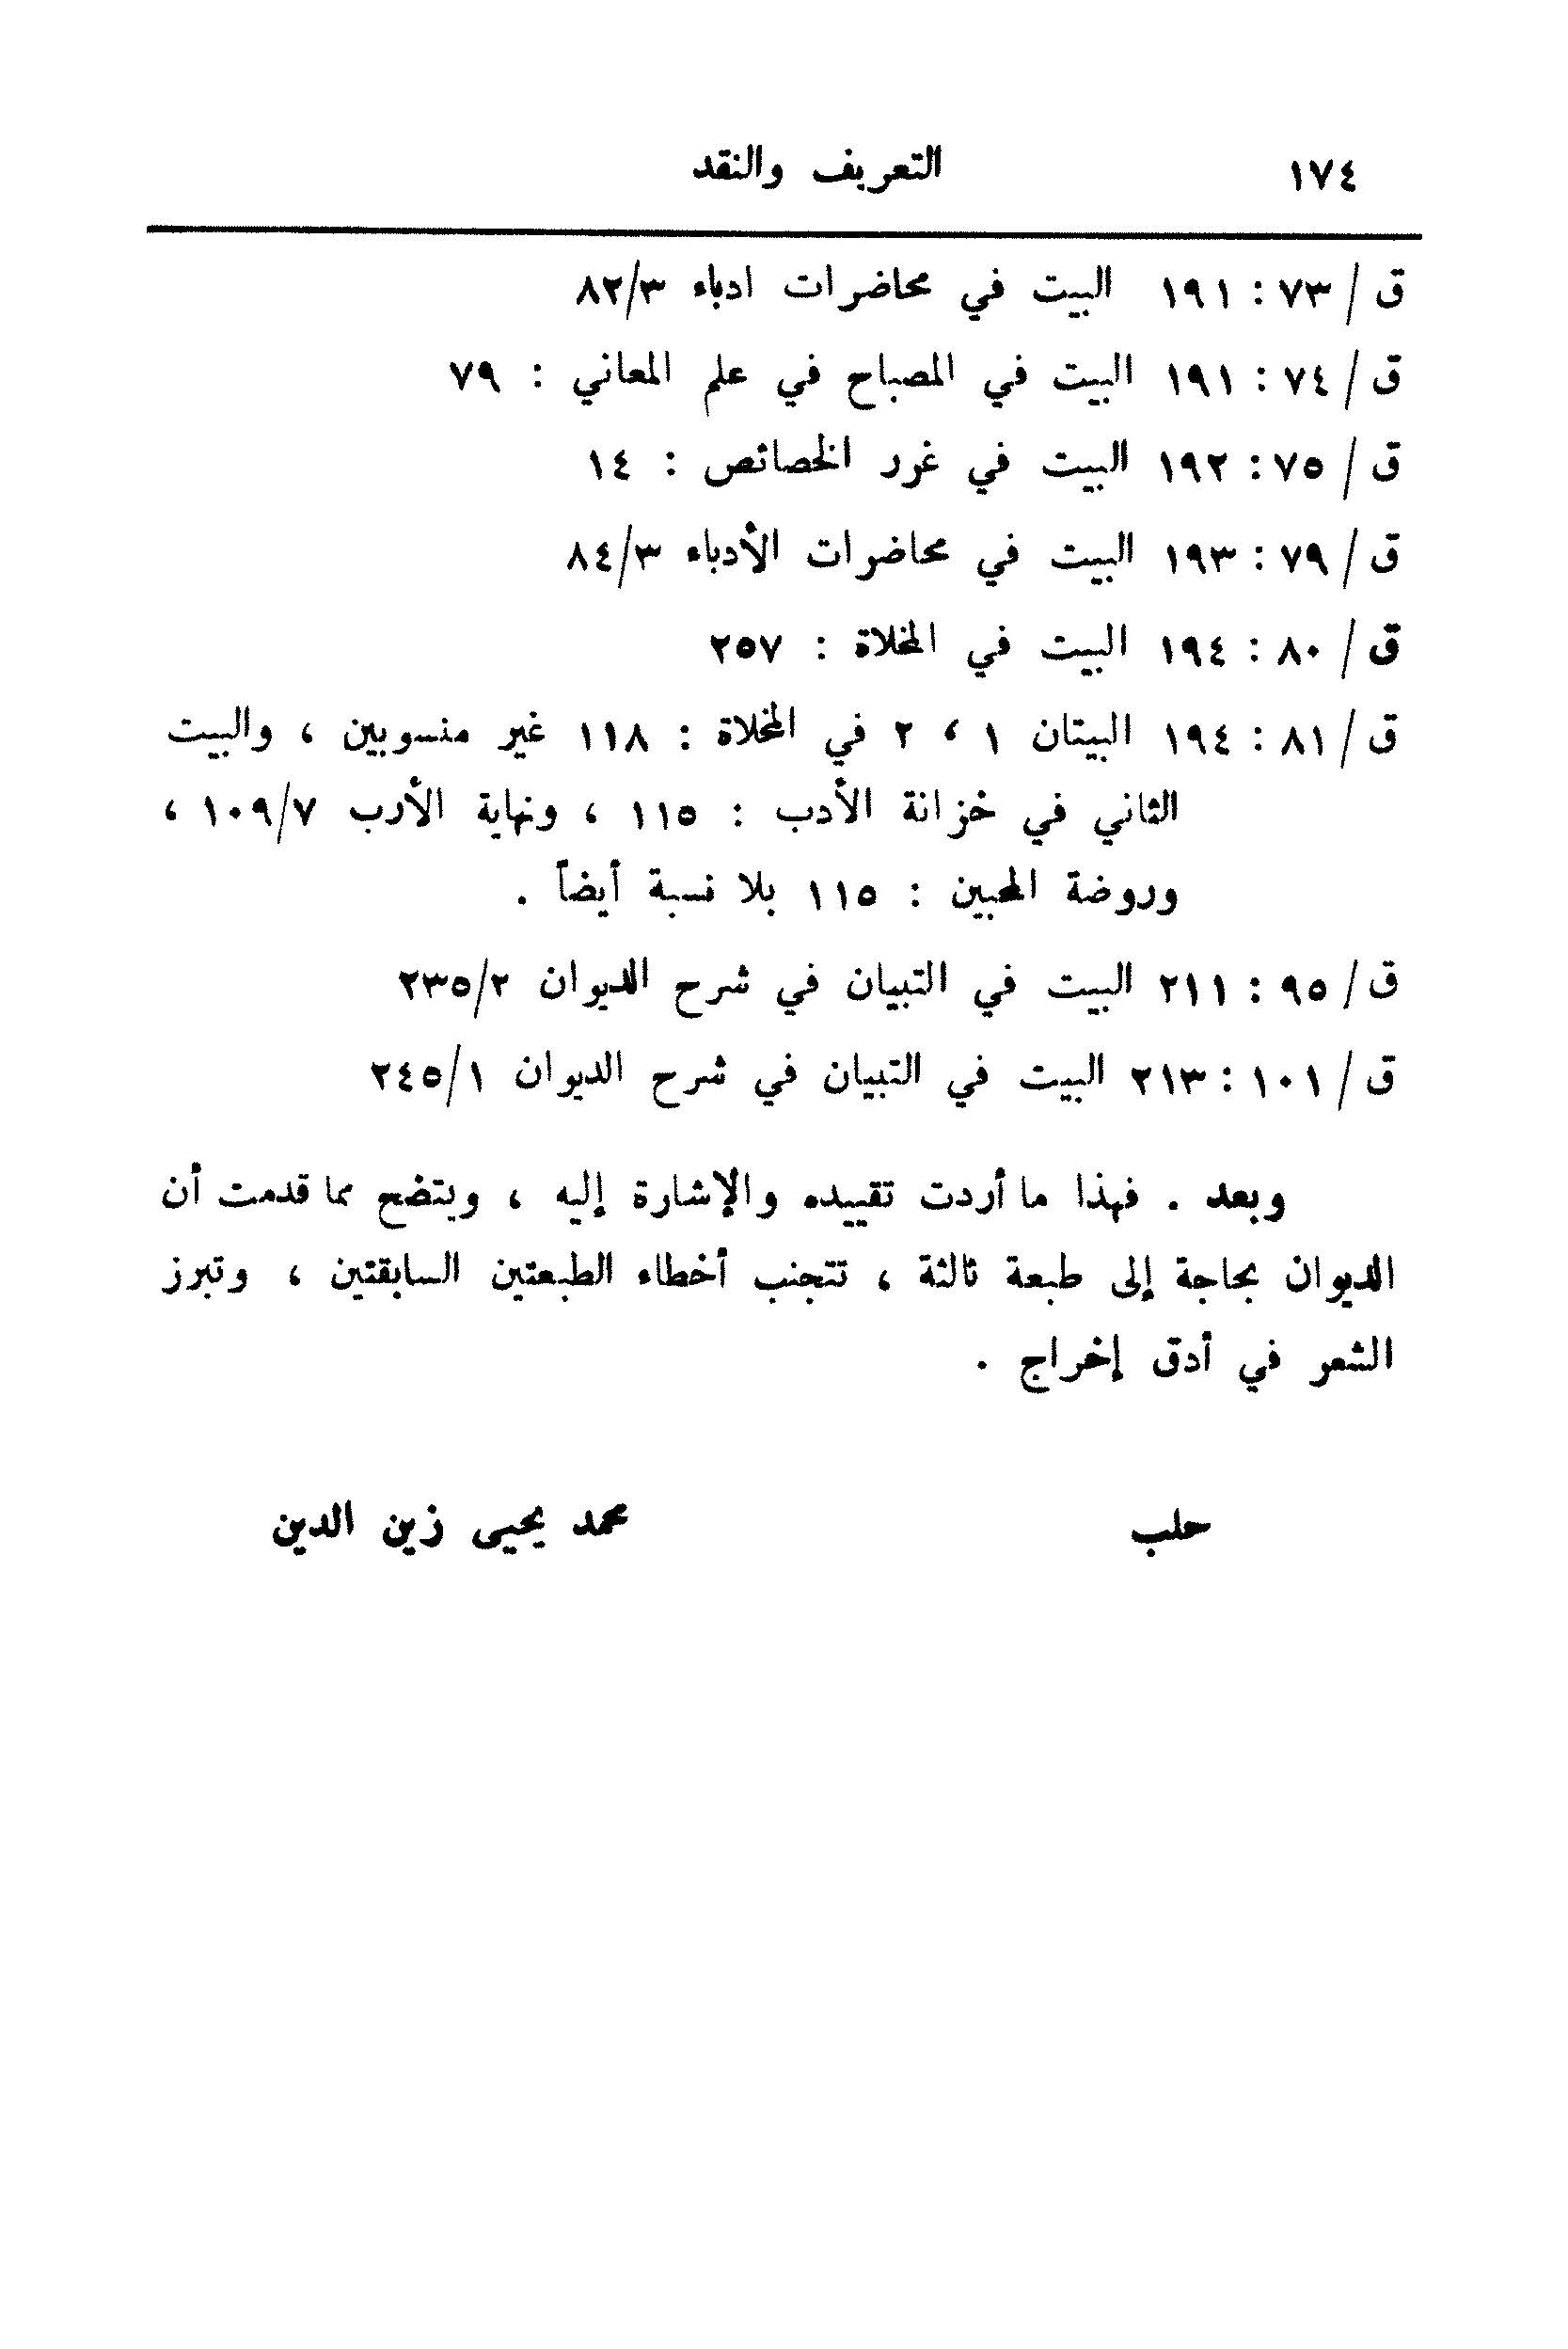 ١٧٤ التعريف والنقد
ق / ٧٣ : ١٩١ البيت في محاضرات ادباء ٨٢/٣
ق / ٧٤ : ١٩١ البيت في المصباح في علم المعاني : ٧٩
ق / ٧٥ : ١٩٢ البيت في غرر الخصائص : ١٤
ق / ٧٩ : ١٩٣ البيت في محاضرات الأدباء ٨٤/٣
ق / ٨٠ : ١٩٤ البيت في المخلاة : ٢٥٧
ق / ٨١ : ١٩٤ البيتان ١ ، ٢ في المخلاة : ١١٨ غير منسوبين ، والبيت
الثاني في خزانة الأدب : ١١٥ ، ونهاية الأرب ١٠٩/٧ ،
وروضة المحبين : ١١٥ بلا نسبة أيضاً .
ق / ٩٥ : ٢١١ البيت في التبيان في شرح الديوان ٢٣٥/٢
ق / ١٠١ : ٢١٣ البيت في التبيان في شرح الديوان ٢٤٥/١
وبعد . فهذا ما أردت تقييده والإشارة إليه ، ويتضح مما قدمت أن
الديوان بحاجة إلى طبعة ثالثة ، تتجنب أخطاء الطبعتين السابقتين ، وتبرز
الشعر في أدق إخراج .
حلب محمد يحيى زين الدين